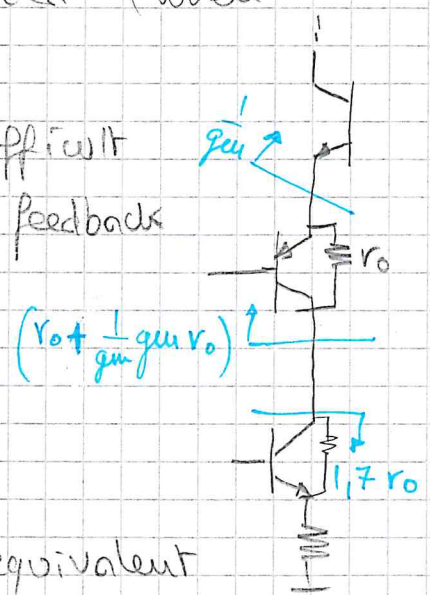 fficult
feedback
1/gm
ro
(ro + 1/gm gm ro)
1,7 ro
equivalent